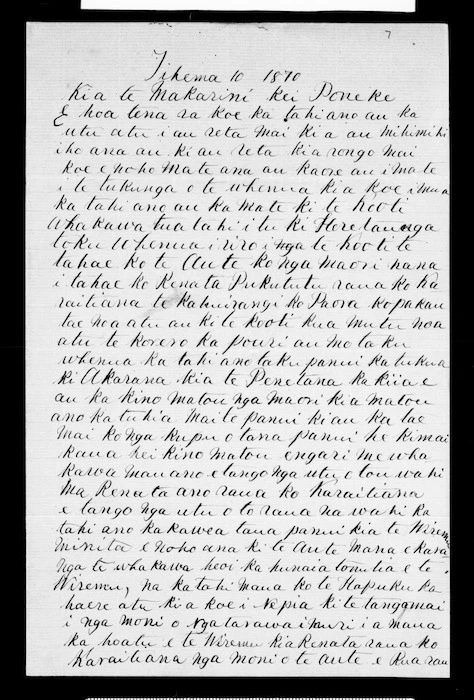 7
Tihema 10 1870
Kia te Makarini kei Poneke
E hoa tena ra koe ka tahi ano au ka
utu atu i au reta mai ki a au mihimihi
iho ana au ki au reta kia rongo mai
koe e noho Mate ana au kaore au i mate
i te tukunga o te whenua kia koe i mua
ka tahi ano au ka mate ki te kooti
whakawa tuatahi i tu ki Heretaunga
toku whenua i riro i nga te kooti te
tahae ko te Aute ko nga maori nana
i tahae ko Renata Pukututu raua ko ha
raitiana te Kahuirangi ko Paora kopakau
tae noa atu au ki te kooti kua mutu noa
atu te korero ka pouri au mo taku
whenua ka tahi ano taku panui ka tukua
ki Akarana kia te Penetana ka kiia e
au ka kino matou nga maori kia matou
ano ka tuhia Mai te panui ki au ka tae
mai ko nga kupu o tana panui he kimai
kaua hei kino matou engari me wha
kawa mau ano e tango nga utu o tou wahi
Ma Renata ano raua ko haraitiana
e tango nga utu o to raua na wahi ka
tahi ano ka kawea tana panui kia te Wiremu
Minita e noho ana ki te Aute Mana e kara
nga te whakawa heoi ka hunaia tonutia e te
Wiremu, na ka tahi maua ko te Hapuku ka
haere atu kia koe i Nepia ki te tangamai
i nga moni o Ngatarawa i muri i a maua
ka hoatu e te Wiremu kia Renata raua ko
Karaitiana nga moni o te aute e Rua rau